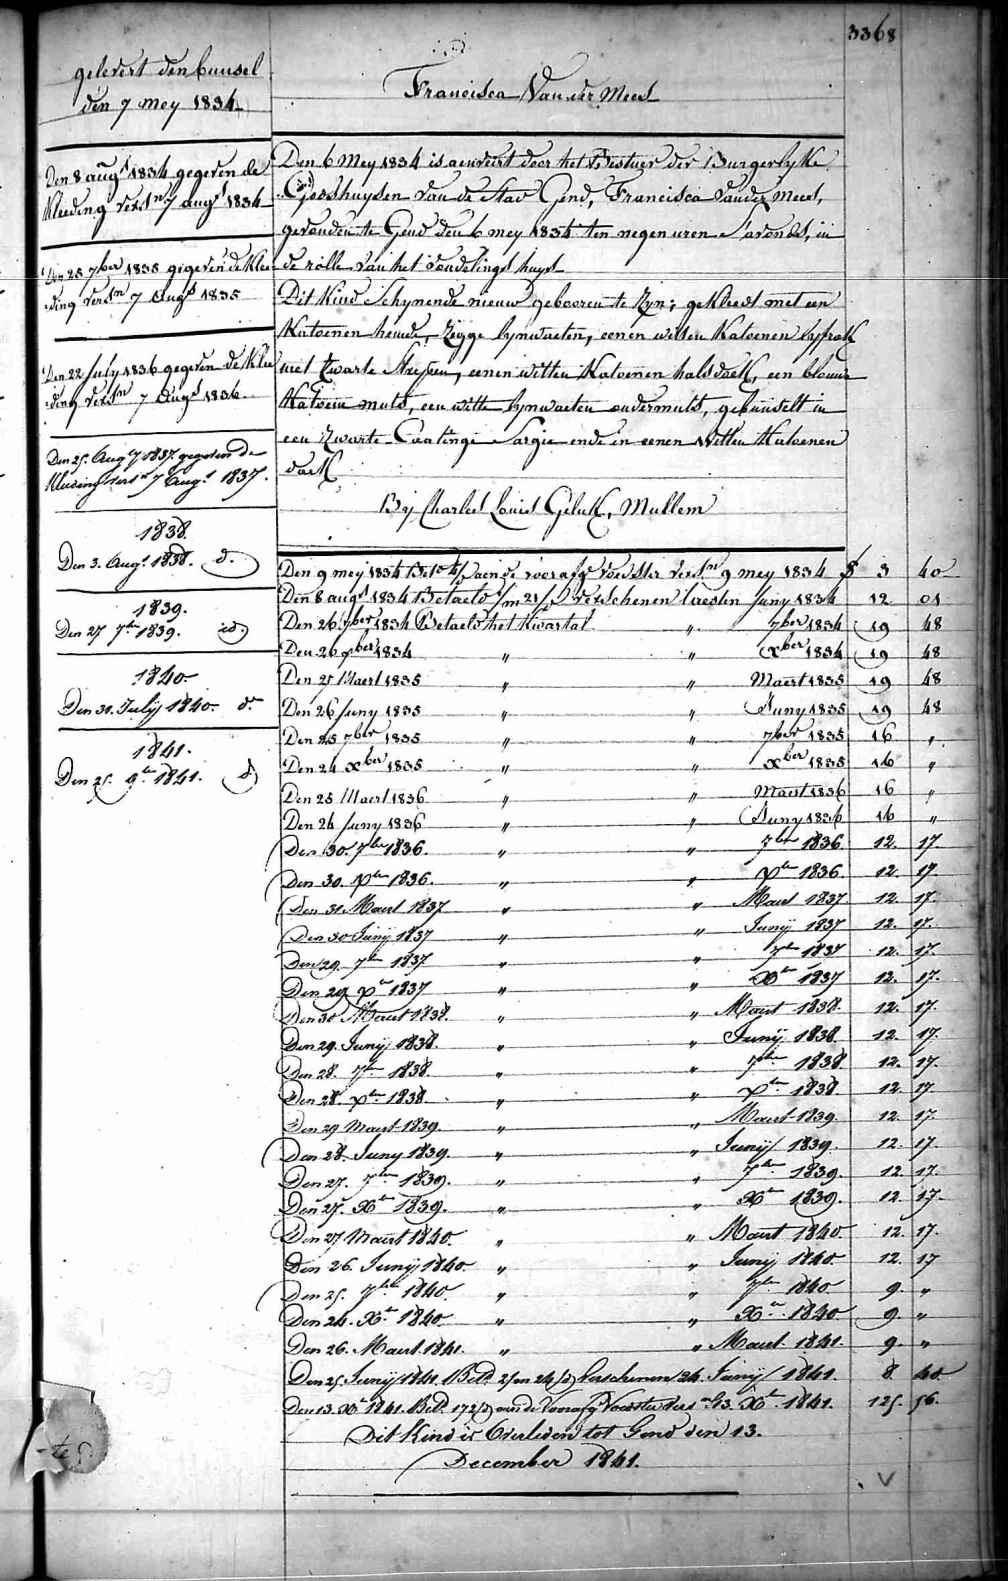 3368
gelevert den bunsel
den 7 mey 1834
Francisca Van der Meest
Den 8 augt 1834 gegeven de
kleeding versn 7 augt 1834
Den 25 7ber 1835 gegeven de klee
ding versn 7 Augt 1835
Den 22 July 1836 gegeven de klee
ding versn 7 Augt 1836.
Den 25 Augt 1837 gegeven de
kleeding versn 7 Augt 1837.
1838.
Den 3. Augt 1838. d.
1839.
Den 27 7br 1839. id.
1840.
Den 31. Julij 1840. d.
1841.
Den 25. 9br 1841. d
Den 6 Mey 1834 is aenveirt door het Bestuer der Burgerlyke
Godshuysen van de Stad Gend, Francisca Vander Meest,
gevonden te Gend den 6 mey 1834 ten negen uren s'avonds, in
de rolle van het vondelingshuys
Dit kind schynende nieuw gebooren te zyn; gekleedt met een
katoenen hemde, lynwaeten, eenen witten katoenen
met zwarte streepen, eenen witten katoenen halsdoek, een blauwe
katoene muts, een witte lynwaeten ondermuts, gebunselt in
een zwarte sargie ende in eenen witten katoenen
doek
By Charles Louis Geluk, Mullem
Den 9 mey 1834 Bet. aen de voorafg voedster versn 9 mey 1834 f 3 40
Den 8 augt 1834 Betaeld /m 21/ verschenen laesten Juny 1834 12 01
Den 26 7ber 1834 Betaeld het kwartal " 7ber 1834 19 48
Den 26 xber 1834 " " xber 1834 19 48
Den 27 Maert 1835 " " Maert 1835 19 48
Den 26 Juny 1835 " " Juny 1835 19 48
Den 25 7ber 1835 " " 7ber 1835 16 "
Den 24 xber 1835 " " xber 1835 16 "
Den 25 Maert 1836 " " Maert 1836 16 "
Den 24 Juny 1836 " " Juny 1836 16 "
Den 30. 7br 1836. " " 7br 1836. 12. 17.
Den 30. xbr 1836. " " xbr 1836. 12. 17
Den 31 Maert 1837 " " Maert 1837 12. 17.
Den 30 Junij 1837 " " Junij 1837 12. 17.
Den 29. 7br 1837. " " 7br 1837 12. 17.
Den 29 xbr 1837 " " xbr 1837 12. 17.
Den 30 Maert 1838. " " Maert 1838. 12. 17.
Den 29. Junij 1838. " " Junij 1838. 12. 17.
Den 28. 7br 1838. " " 7br 1838. 12. 17.
Den 28. xbr 1838. " " xbr 1838. 12. 17
Den 29 Maert 1839. " " Maert 1839. 12. 17.
Den 28. Juny 1839. " " Junij 1839. 12. 17.
Den 27. 7br 1839. " " 7br 1839. 12. 17.
Den 27. Xbr 1839. " " Xbr 1839. 12. 17.
Den 27 Maert 1840. " " Maert 1840. 12. 17.
Den 26. Junij 1840. " " Junij 1840. 12. 17
Den 25. 7br 1840. " " 7br 1840. 9. "
Den 24. Xbr 1840. " " Xbr 1840 9. "
Den 26. Maert 1841. " " Maert 1841. 9. "
Den 25 Junij 1841. Betd. 2/m 24/d verschenen 24. Junij 1841. 8. 40.
Den 13. Xbr 1841. Betd. 172/d aen de voorafg voedster vers 13. Xbr 1841. 125. 56.
Dit kind is overleden tot Gend den 13.
December 1841.